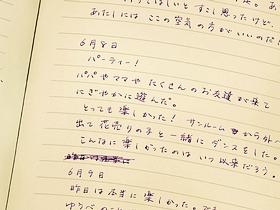 てほしいとすこし思ったけど、
あたしにはここの空気の方がいいのだ
6月8日
パーティー!
パパやママやたくさんのお友達が来て
にぎやかに遊んだ。
とっても楽しかった! サンルームから外へ
出て花売りの子と一緒にダンスをした。
こんなに楽しかったのはいつ以来だろう。
6月9日
昨日は本当に楽しかった。
ゆうべの